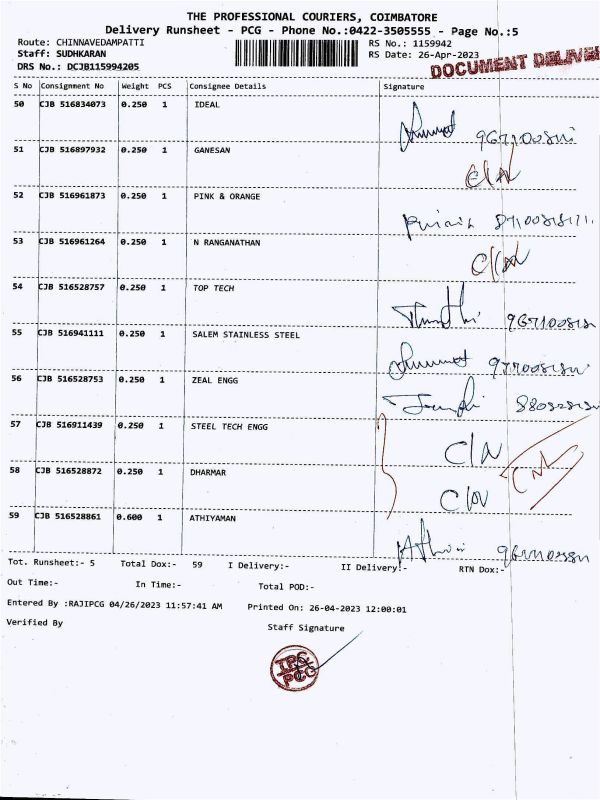 THE PROFESSIONAL COURIERS, COIMBATORE
Delivery Runsheet - PCG - Phone No.:0422-3505555 - Page No.:5
Route: CHINNAVEDAMPATTI RS No.: 1159942
Staff: SUDHKARAN RS Date: 26-Apr-2023
DRS No.: DCJB115994205 DOCUMENT
S No Consignment No Weight PCS Consignee Details Signature
50 CJB 516834073 0.250 1 IDEAL
51 CJB 516897932 0.250 1 GANESAN
52 CJB 516961873 0.250 1 PINK & ORANGE
53 CJB 516961264 0.250 1 N RANGANATHAN
54 CJB 516528757 0.250 1 TOP TECH
55 CJB 516941111 0.250 1 SALEM STAINLESS STEEL
56 CJB 516528753 0.250 1 ZEAL ENGG
57 CJB 516911439 0.250 1 STEEL TECH ENGG C/N
58 CJB 516528872 0.250 1 DHARMAR
59 CJB 516528861 0.600 1 ATHIYAMAN
Tot. Runsheet:- 5 Total Dox:- 59 I Delivery:- II Delivery:- RTN Dox:-
Out Time:- In Time:- Total POD:-
Entered By :RAJIPCG 04/26/2023 11:57:41 AM Printed On: 26-04-2023 12:00:01
Verified By Staff Signature
TPC
PCG